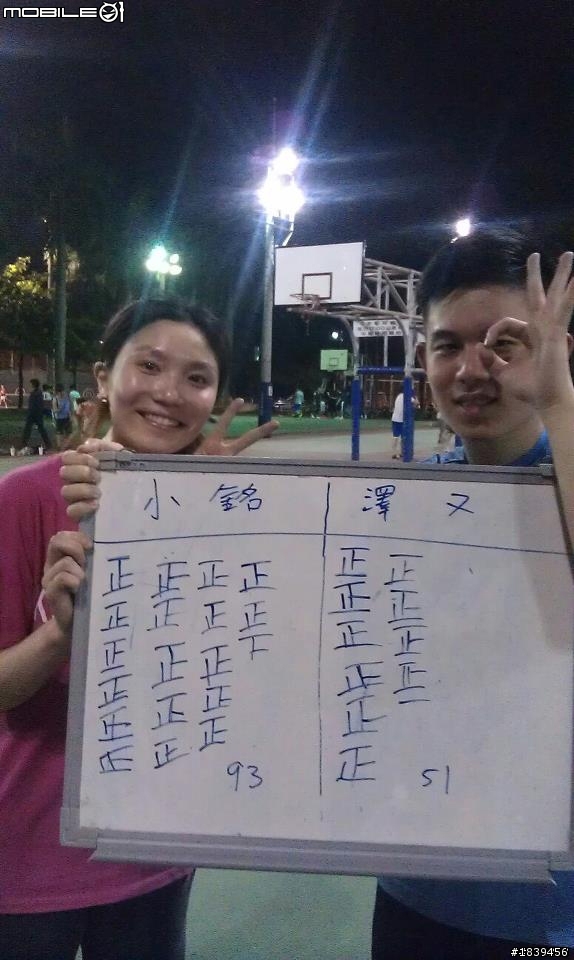 MOBILE01
小 銘 澤 又
正 正 正 正 正 正
正 正 正 正 正 正
正 正 正 下 正 正
正 正 正 正 正
正 正 正 正 一
正 正
93 51
#1839456